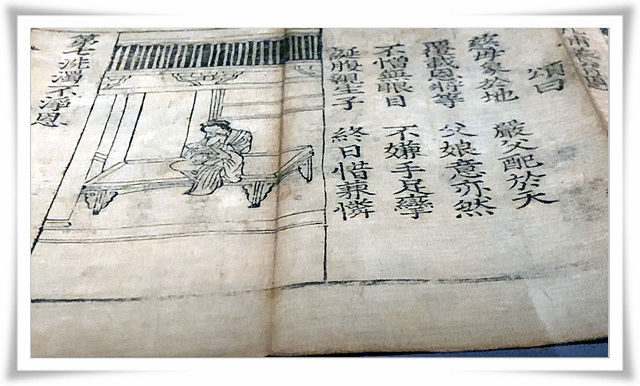 頌曰
慈母象於地 嚴父配於天
覆載恩將等 父娘意亦然
不憎無眼目 不嫌手足攣
誕腹親生子 終日惜兼憐
第七洗濯不淨恩